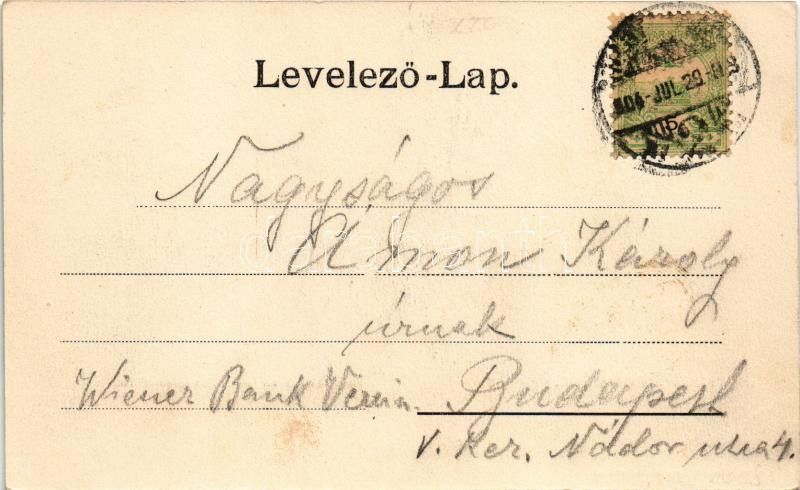 Levelező-Lap.
904 JUL. 29.
Nagyságos
Ámon Károly
úrnak
Wiener Bank Verein. Budapest
V. Ker. Nádor utca 4.
darabanth